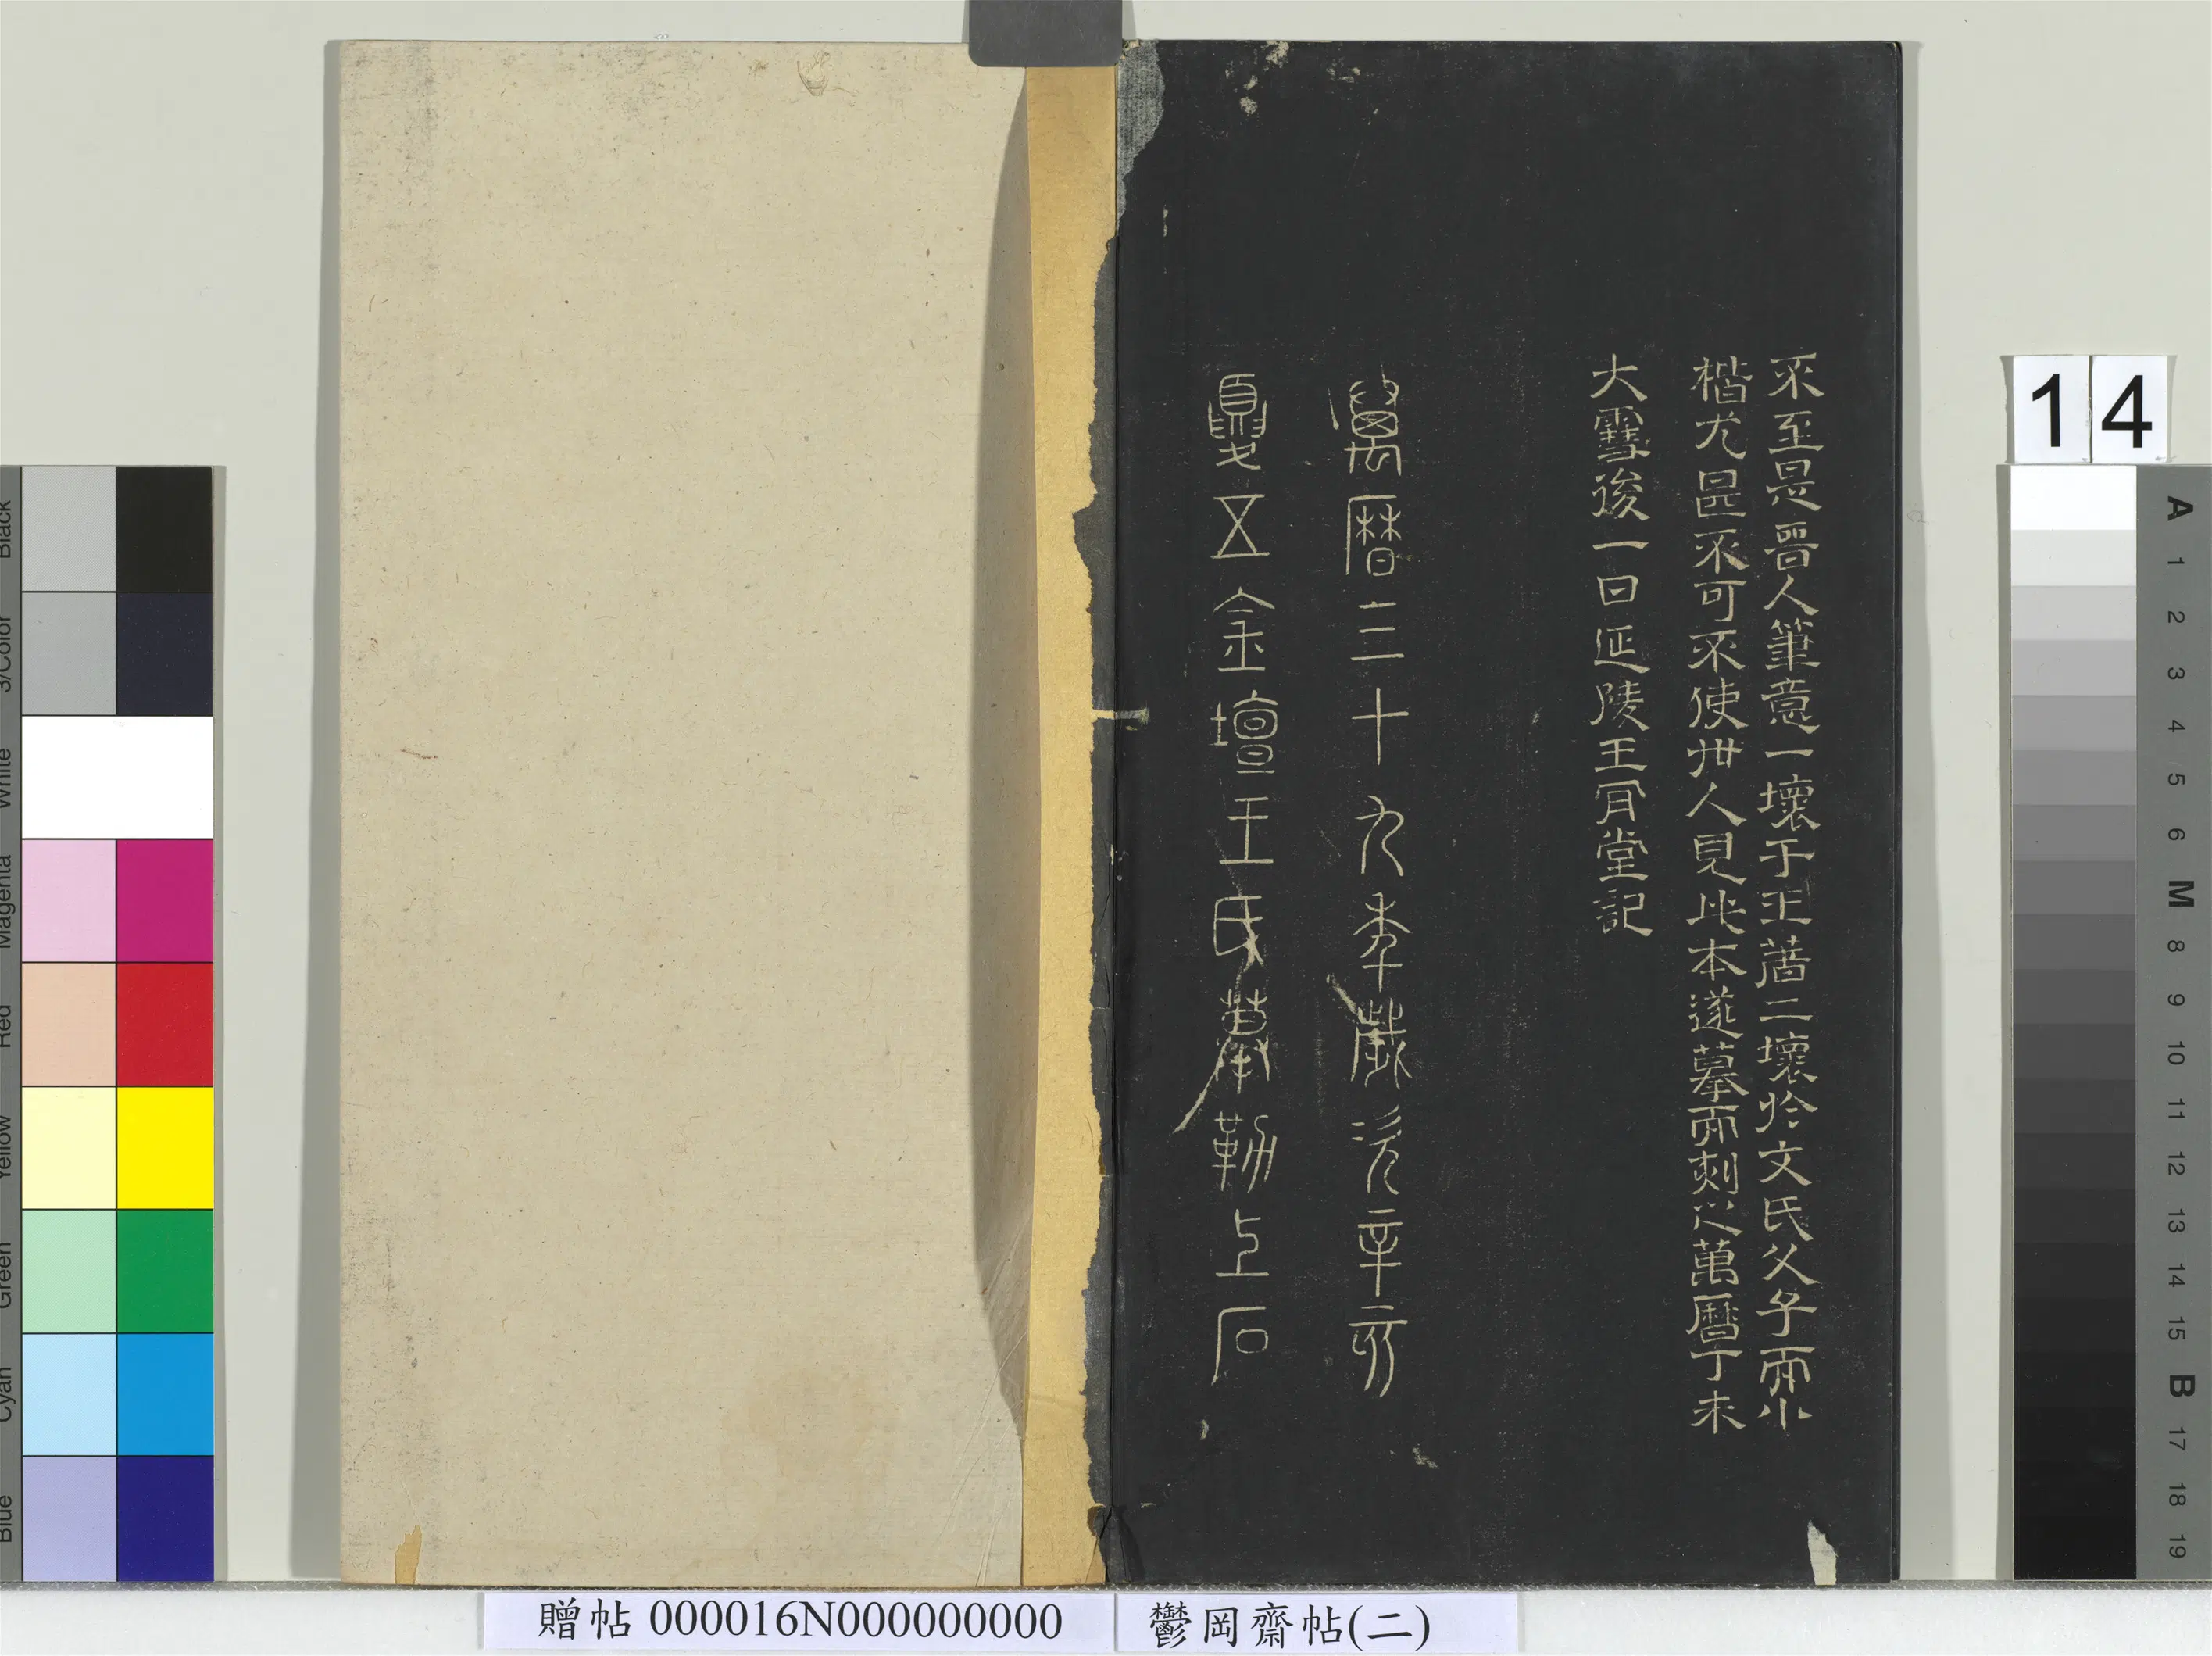 不至是晉人筆意一壞于王著二壞於文氏父子而小
楷尤甚不可不使世人見此本遂摹而刻之萬曆丁未
大雪後一日延陵王肎堂記
萬曆三十九季歲次辛亥
夏五金壇王氏摹勒上石
14
A
1
2
3
4
5
6
M
8
9
10
11
12
13
14
15
B
17
18
19
Black
3/Color
White
Magenta
Red
Yellow
Green
Cyan
Blue
贈帖 000016N000000000
鬱岡齋帖(二)